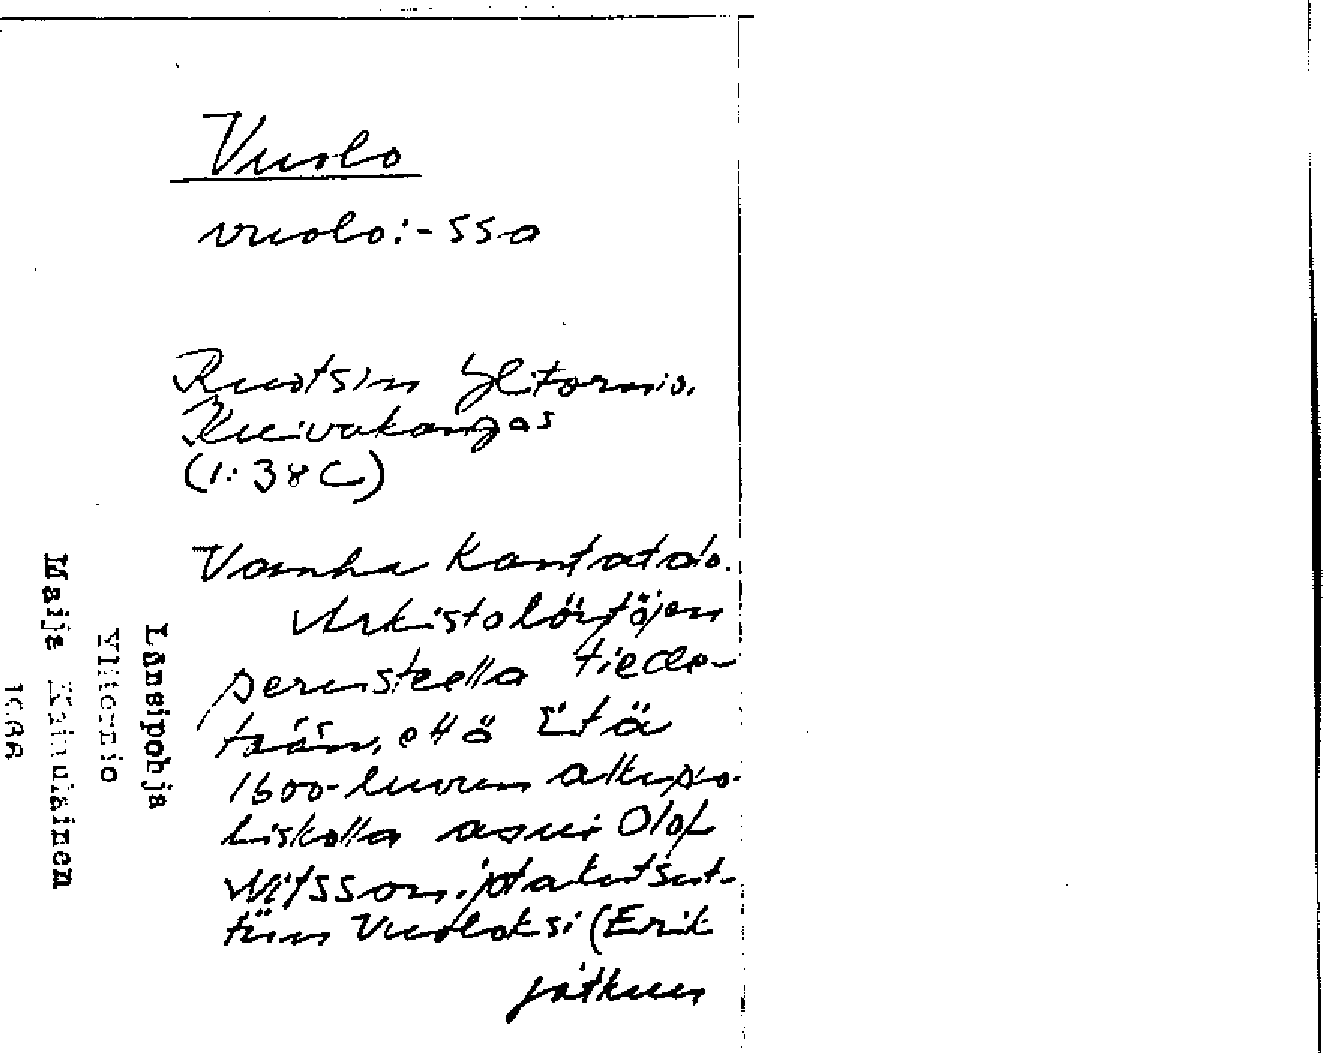 Vuolo
vuolo:-ssa
Ruotsin Ylitornio.
Kuivakangas
(1:38C)
Vanha kantatalo.
Arkistolöytöjen
perusteella tiede-
tään, että
1600-luvun alkupuo-
liskolla asui Olof
Nilsson, jota kutsut-
tiin Vuoloksi (Erik
jatkuu
Länsipohja
Ylitornio
Maija Kainulainen